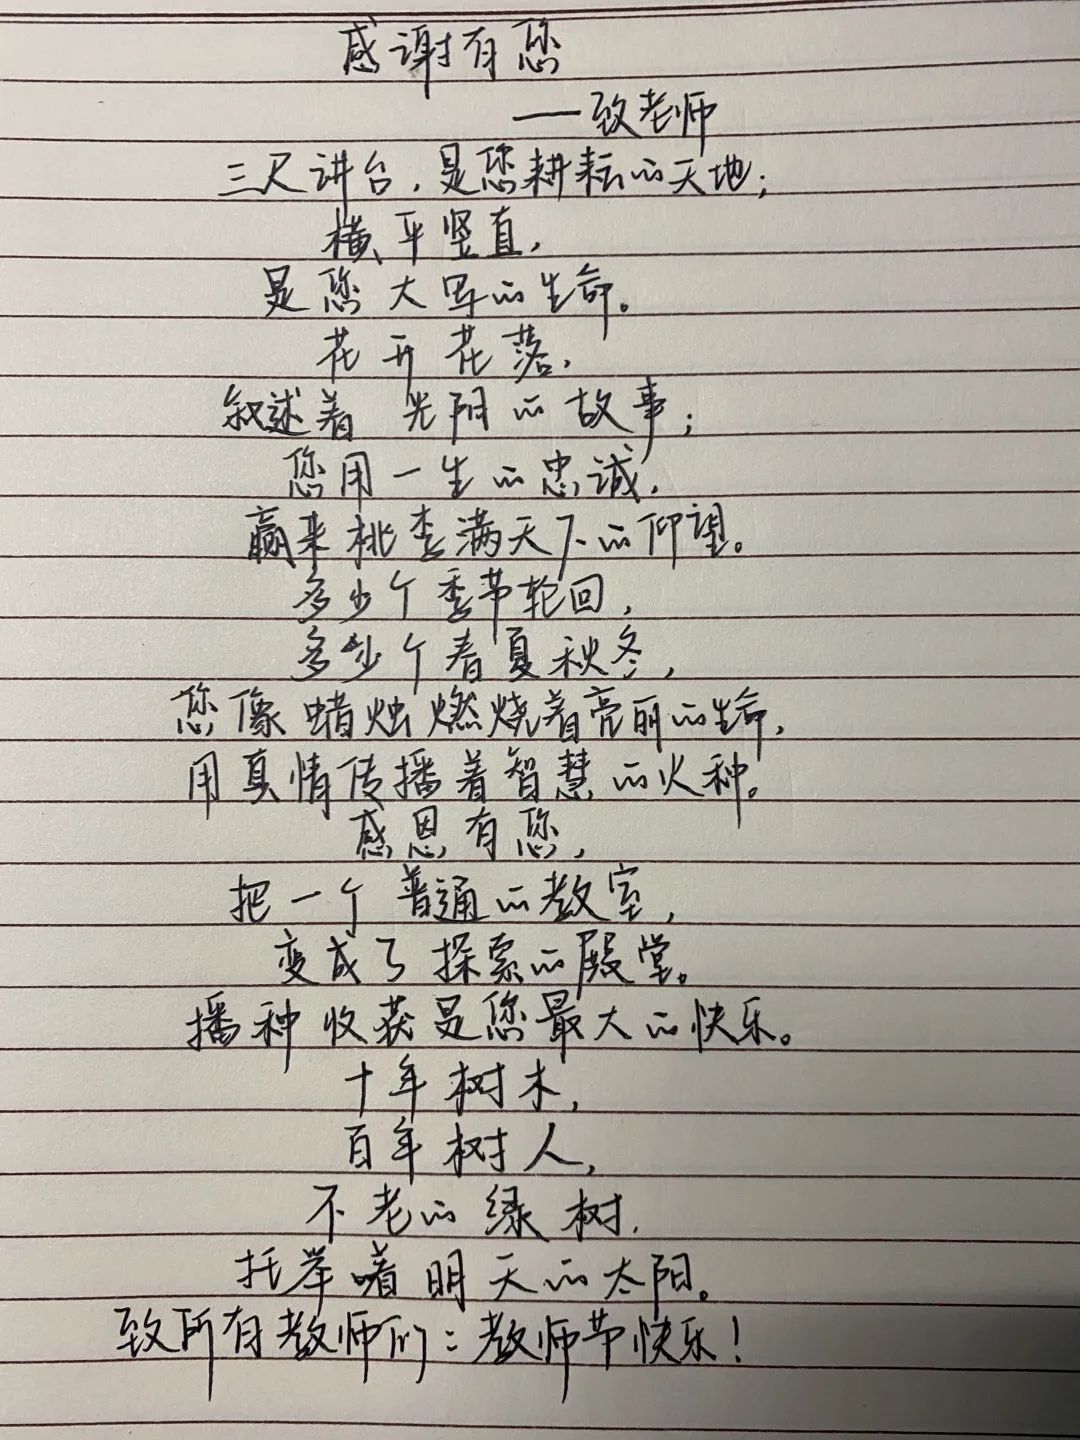 感谢有您
——致老师
三尺讲台，是您耕耘的天地；
横平竖直，
是您大写的生命。
花开花落，
叙述着光阴的故事；
您用一生的忠诚，
赢来桃李满天下的仰望。
多少个季节轮回，
多少个春夏秋冬，
您像蜡烛燃烧着亮丽的生命，
用真情传播着智慧的火种。
感恩有您，
把一个普通的教室，
变成了探索的殿堂。
播种收获是您最大的快乐。
十年树木，
百年树人，
不老的绿树，
托举着明天的太阳。
致所有教师们：教师节快乐！